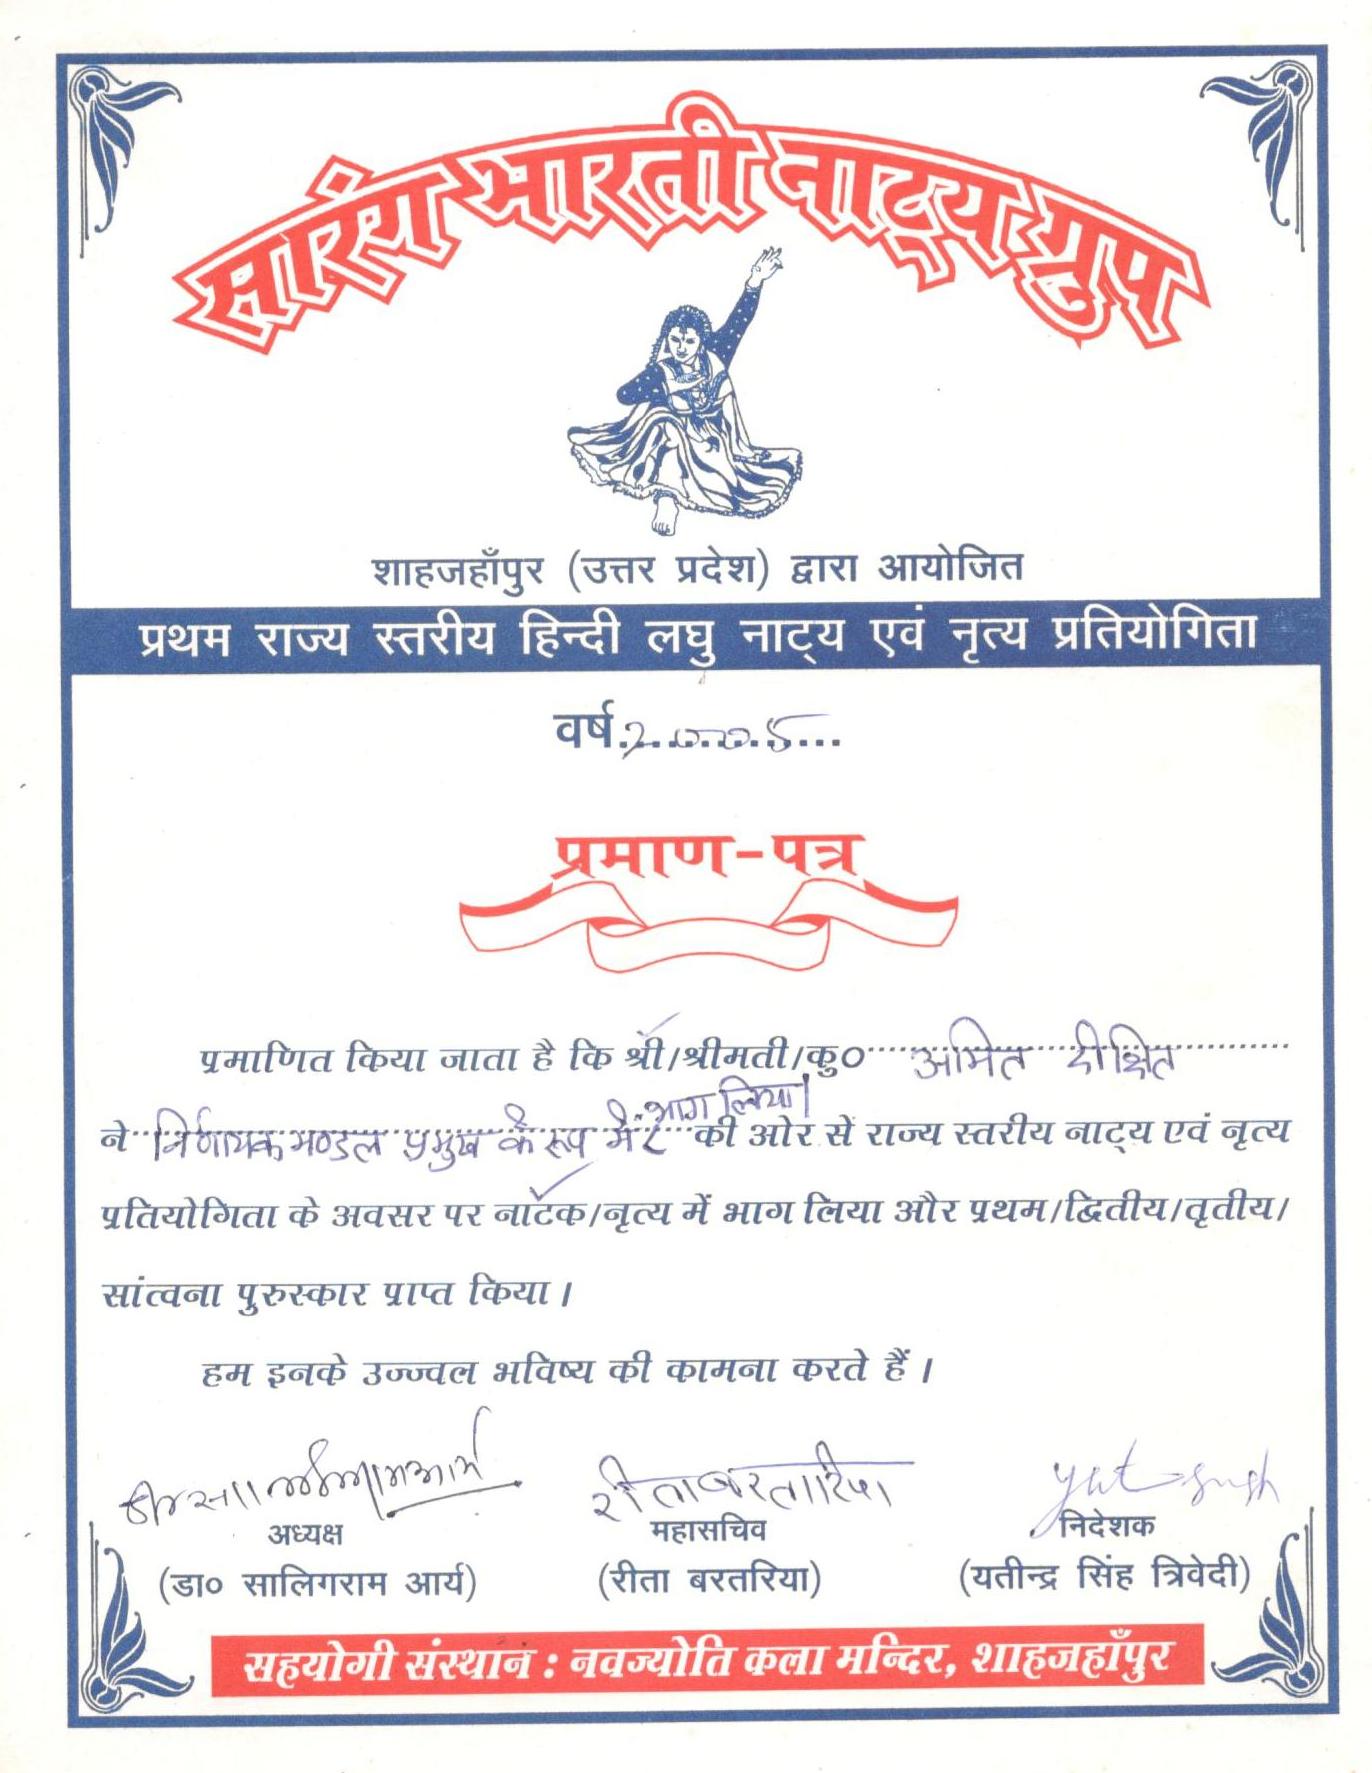 सारंग भारती नाट्य ग्रुप
शाहजहाँपुर (उत्तर प्रदेश) द्वारा आयोजित
प्रथम राज्य स्तरीय हिन्दी लघु नाट्य एवं नृत्य प्रतियोगिता
वर्ष 2005
प्रमाण-पत्र
प्रमाणित किया जाता है कि श्री/श्रीमती/कु० अमित दीक्षित
भाग लिया।
ने निर्णायक मण्डल प्रमुख के रूप में की ओर से राज्य स्तरीय नाट्य एवं नृत्य
प्रतियोगिता के अवसर पर नाटक/नृत्य में भाग लिया और प्रथम/द्वितीय/तृतीय/
सांत्वना पुरुस्कार प्राप्त किया।
हम इनके उज्ज्वल भविष्य की कामना करते हैं।
रीता बरतारिया
अध्यक्ष महासचिव निदेशक
(डा० सालिगराम आर्य) (रीता बरतरिया) (यतीन्द्र सिंह त्रिवेदी)
सहयोगी संस्थान : नवज्योति कला मन्दिर, शाहजहाँपुर